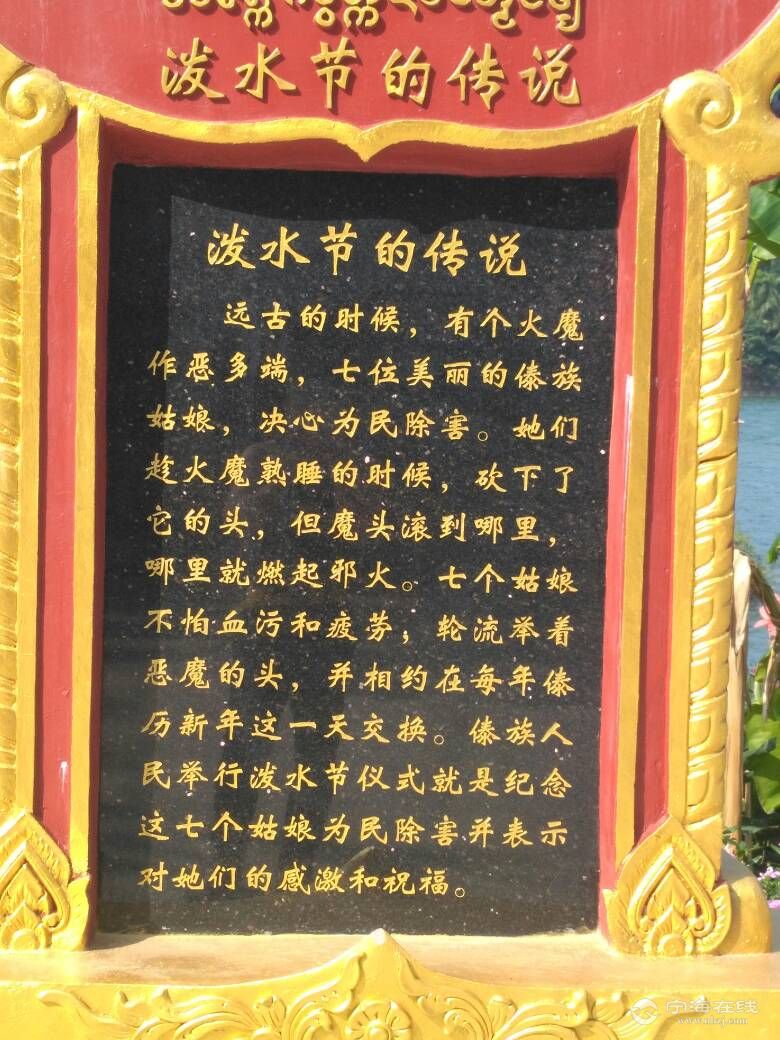 泼水节的传说
泼水节的传说
远古的时候，有个火魔
作恶多端，七位美丽的傣族
姑娘，决心为民除害。她们
趁火魔熟睡的时候，砍下了
它的头，但魔头滚到哪里，
哪里就燃起邪火。七个姑娘
不怕血污和疲劳，轮流举着
恶魔的头，并相约在每年傣
历新年这一天交换。傣族人
民举行泼水节仪式就是纪念
这七个姑娘为民除害并表示
对她们的感激和祝福。
宁海在线